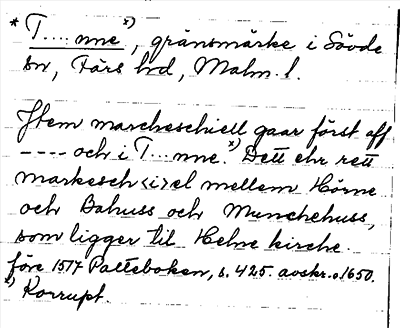 * T....nne x), gränsmärke i Sövde
sn, Färs hd, Malm. l.
Jtem marcheschiell gaar först aff
---- och i T...nne. x) Dett ehr rett
markesch<i>el mellem Hörne
och Bahuss och Munchehuss,
som ligger til Helne kirche
före 1517 Palteboken, s. 425. avskr. o. 1650.
x) Korrupt.